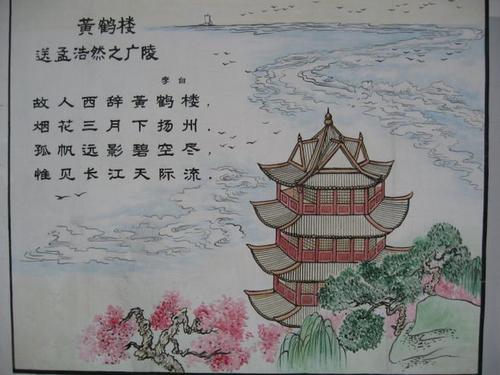 黄鹤楼
送孟浩然之广陵
李白
故人西辞黄鹤楼，
烟花三月下扬州．
孤帆远影碧空尽，
惟见长江天际流．